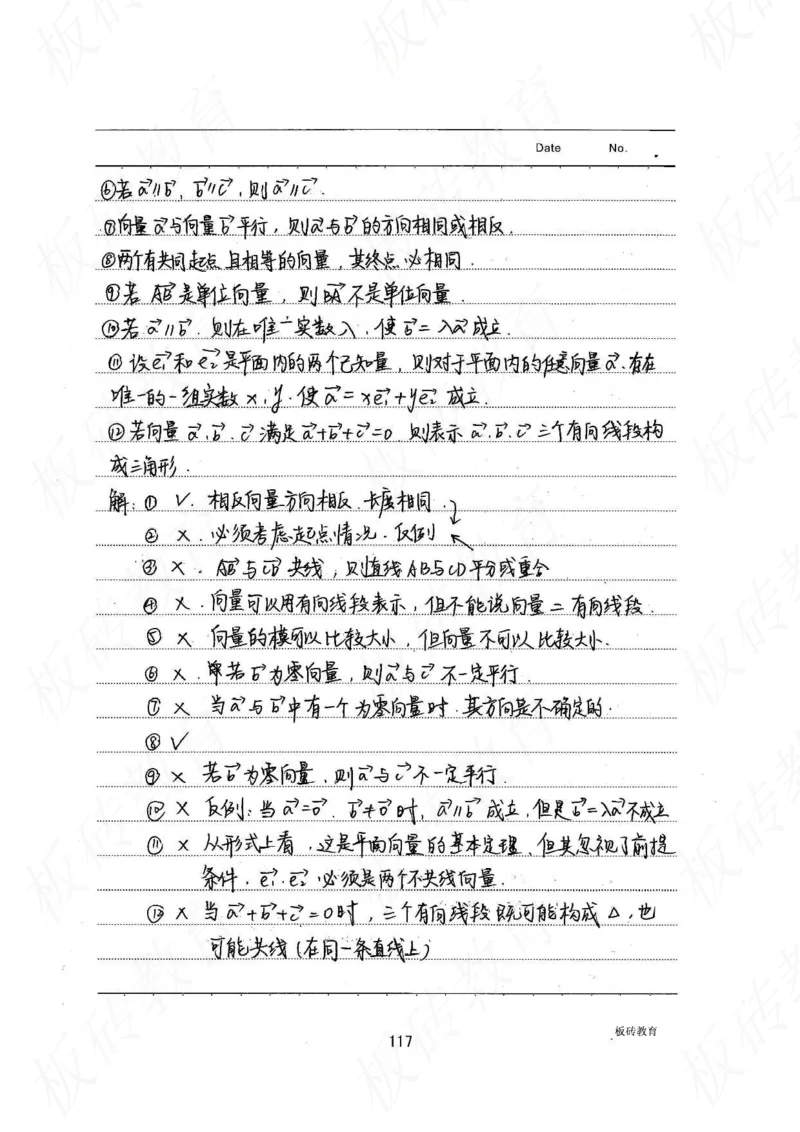 Date No.
⑥若a⃗∥b⃗,b⃗∥c⃗,则a⃗∥c⃗.
⑦向量a⃗与向量b⃗平行,则a⃗与b⃗的方向相同或相反.
⑧两个有共同起点且相等的向量,其终点必相同.
⑨若AB⃗是单位向量,则BA⃗不是单位向量.
⑩若a⃗∥b⃗.则在唯一实数λ,使b⃗=λa⃗成立.
⑪设e₁⃗和e₂⃗是平面内的两个已知量,则对于平面内的任意向量a⃗.有在
唯一的一组实数x,y.使a⃗=xe₁⃗+ye₂⃗成立.
⑫若向量a⃗.b⃗.c⃗满足a⃗+b⃗+c⃗=0.则表示a⃗.b⃗.c⃗三个有向线段构
成三角形.
解:① √.相反向量方向相反.长度相同.
② ×.必须考虑起点情况.反例
③ ×.AB⃗与CD⃗共线,则直线AB与CD平分或重合
④ ×.向量可以用有向线段表示,但不能说向量=有向线段.
⑤ × 向量的模可以比较大小,但向量不可以比较大小.
⑥ ×.若b⃗为零向量,则a⃗与c⃗不一定平行.
⑦ × 当a⃗与b⃗中有一个为零向量时.其方向是不确定的.
⑧ √
⑨ × 若b⃗为零向量.则a⃗与c⃗不一定平行.
⑩ × 反例:当a⃗=0⃗.b⃗≠0⃗时,a⃗∥b⃗成立,但是b⃗=λa⃗不成立
⑪ × 从形式上看,这是平面向量的基本定理.但其忽视了前提
条件.e₁⃗.e₂⃗必须是两个不共线向量.
⑫ × 当a⃗+b⃗+c⃗=0时,三个有向线段既可能构成△,也
可能共线(在同一条直线上)
板砖教育
117